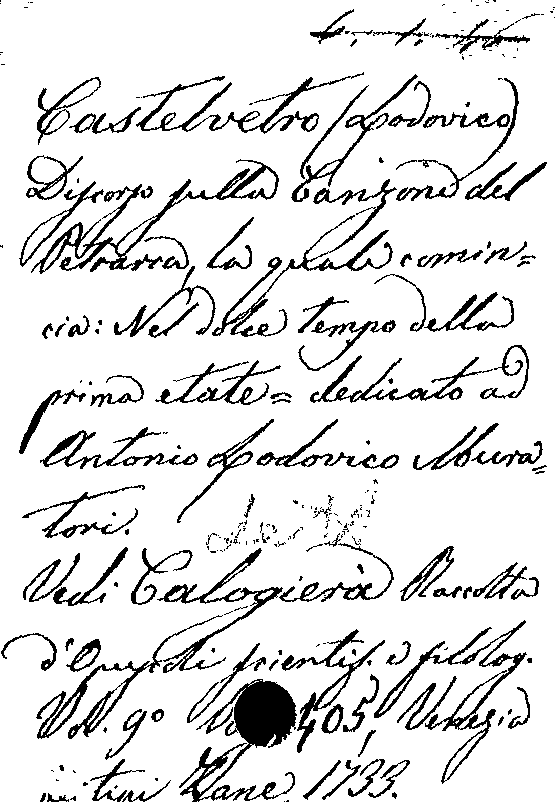 6. 1. 46
Castelvetro (Lodovico)
Discorso sulla Canzone del
Petrarca, la quale comin=
cia: Nel dolce tempo della
prima etate= dedicato ad
Antonio Lodovico Mura=
tori.
Vedi Calogierà Raccolta
d'Opuscoli scientif. e filolog.
Vol. 9º 405, Venezia
Zane 1733.